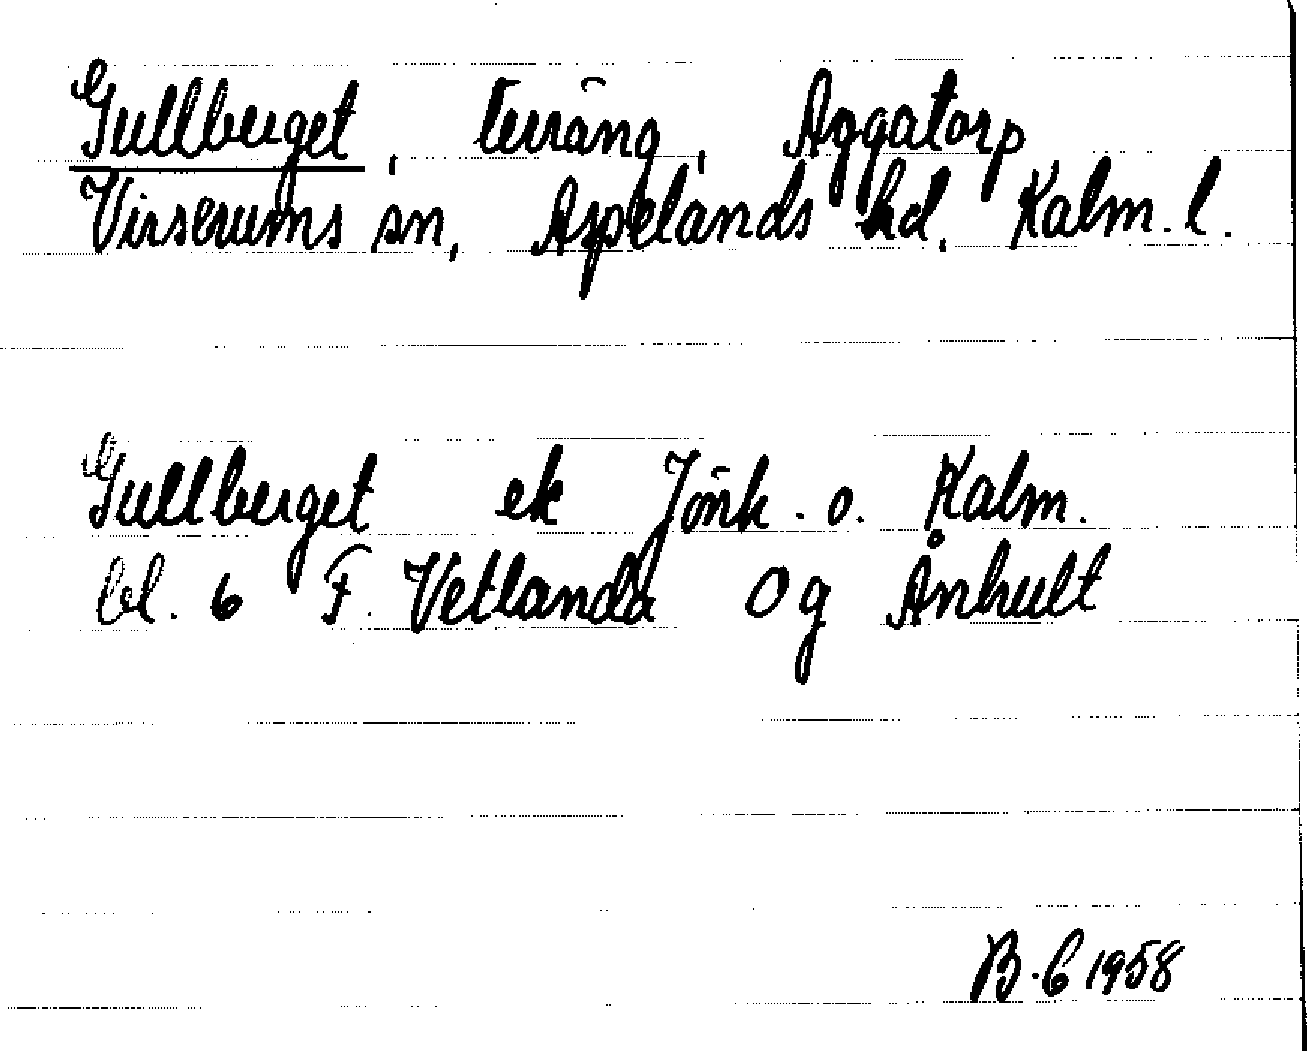 Gullberget, terräng, Aggatorp
Virserums sn, Aspelands hd. Kalm. l.
Gullberget ek Jönk. o. Kalm.
bl. 6 F. Vetlanda Og Ånhult
B. 6 1958